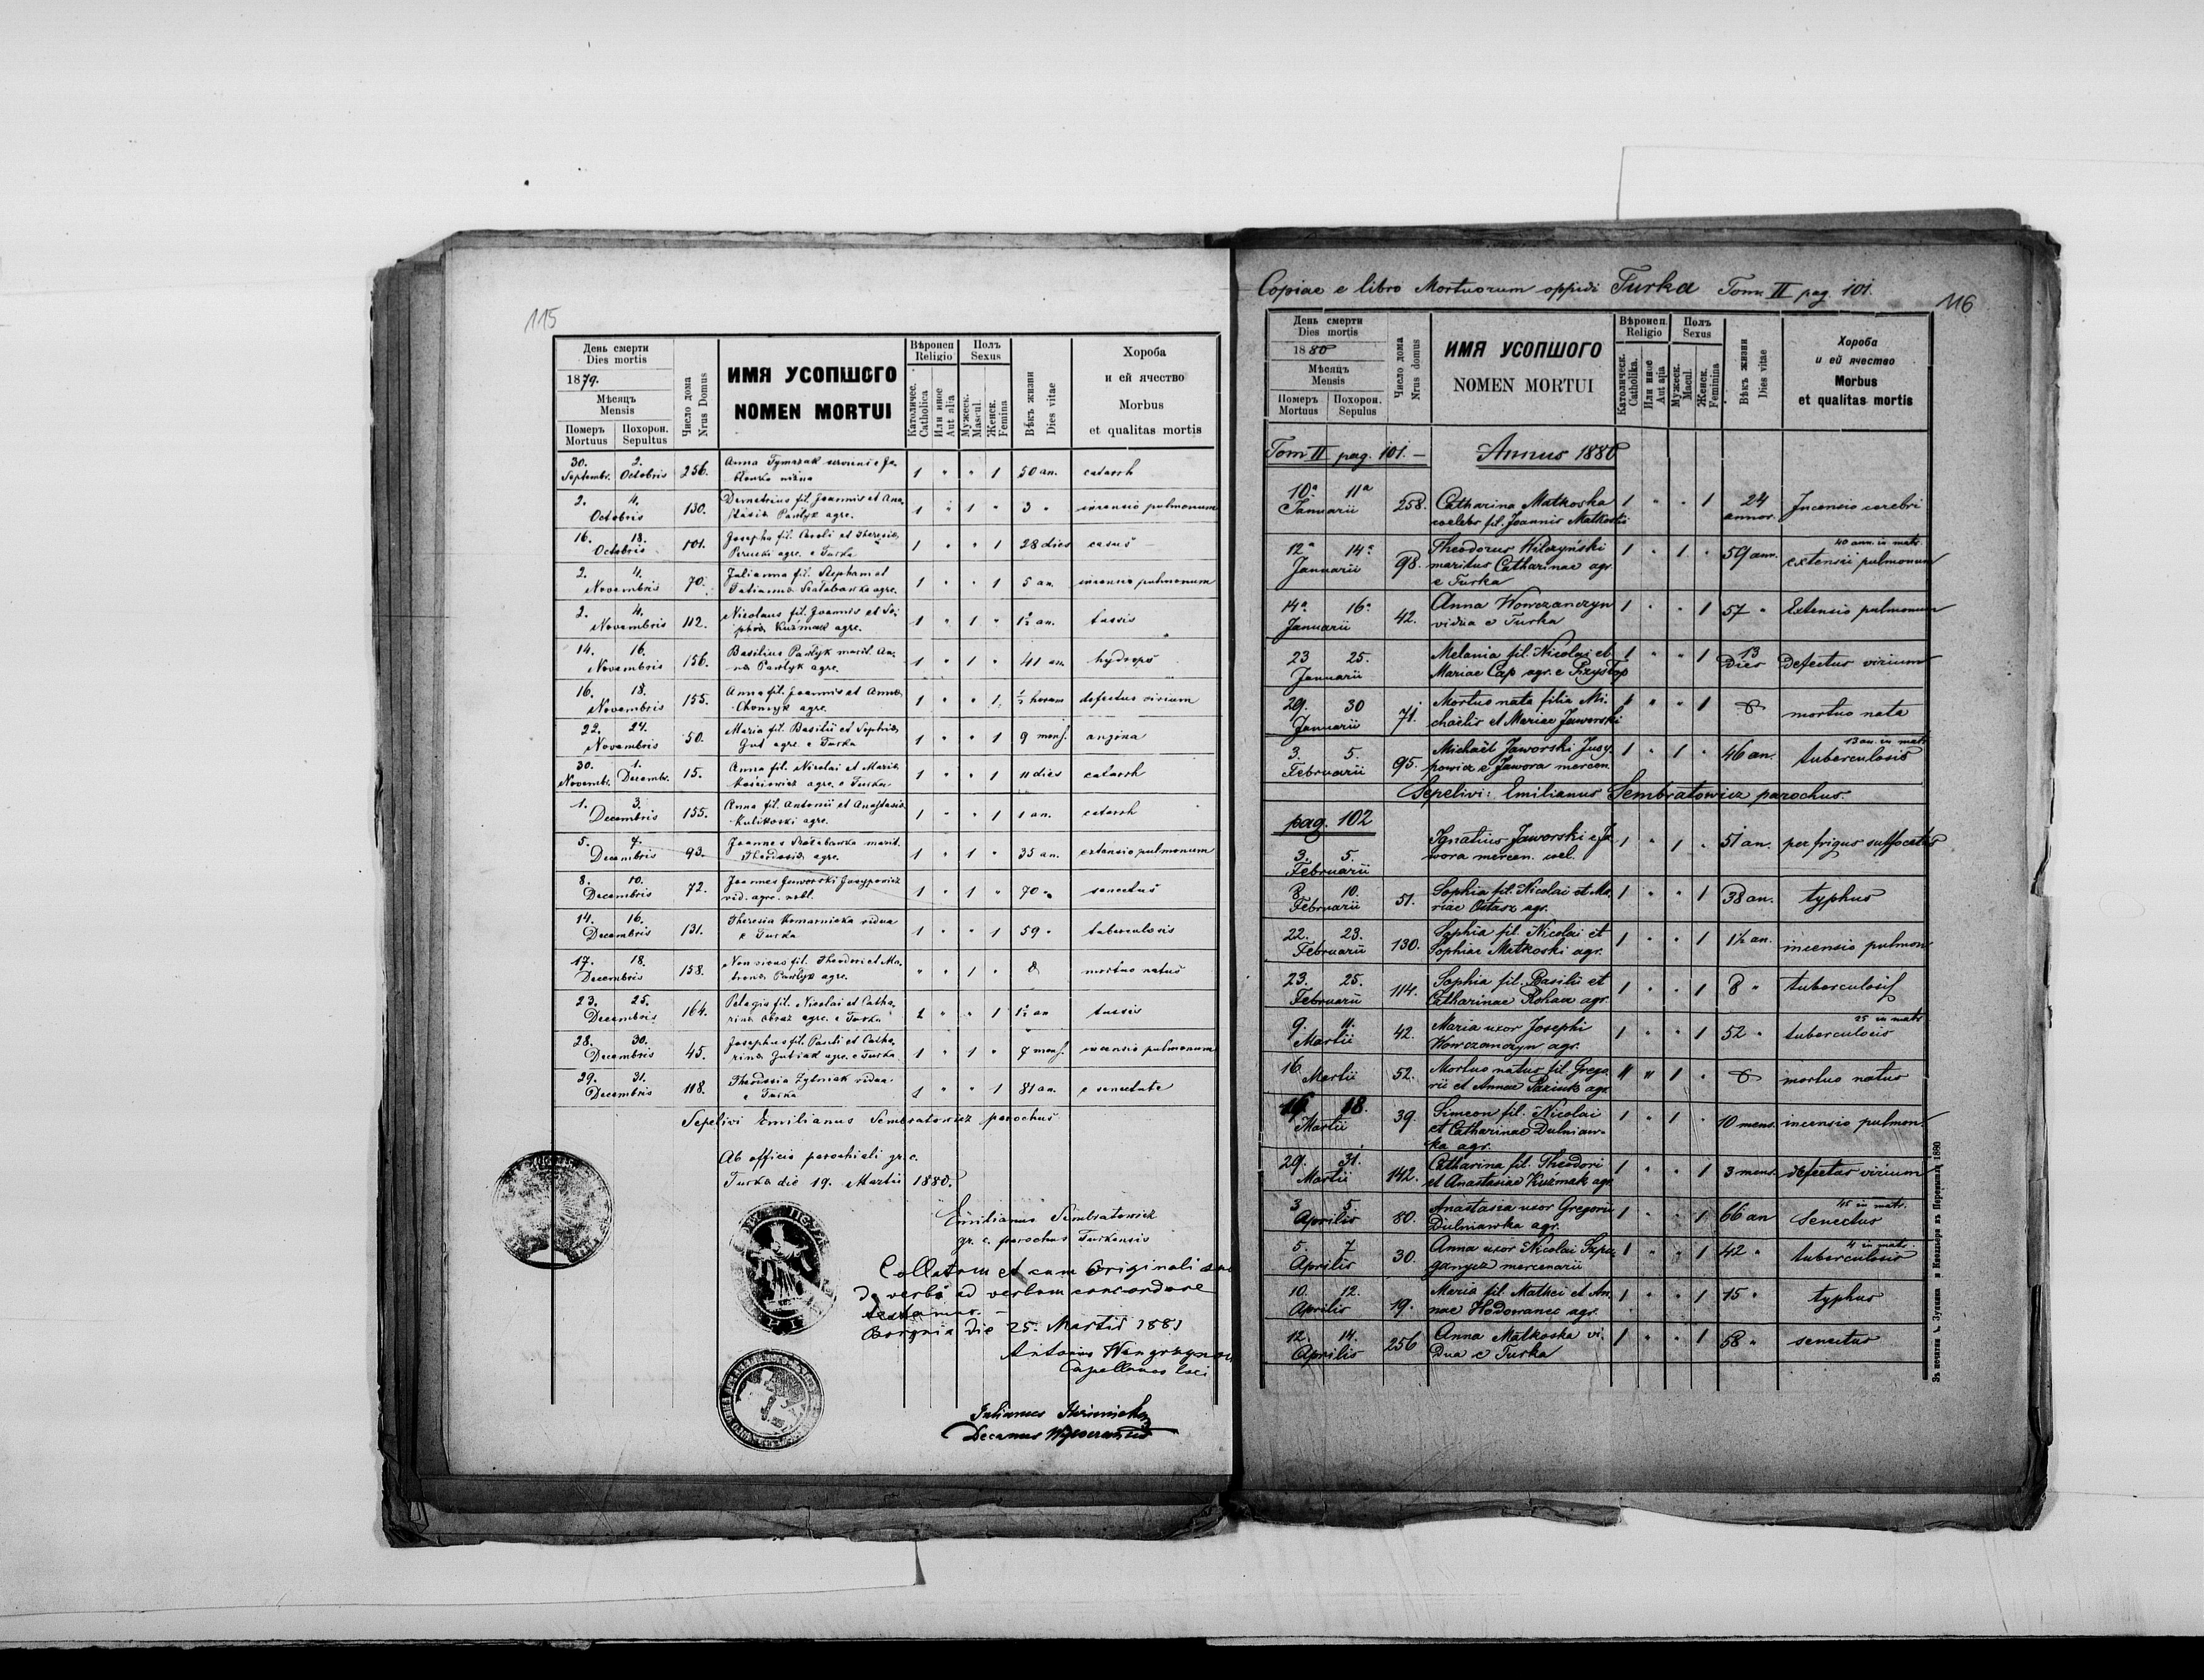 115
День смерти
Dies mortis
1879.
Мѣсяцъ
Mensis
Померъ Похорон.
Mortuus Sepultus
Число дома
Nrus Domus
ИМЯ УСОПШОГО
NOMEN MORTUI
Вѣроисп
Religio
Католичес.
Catholica
Или иное
Aut alia
Полъ
Sexus
Мужеск.
Mascul.
Женск.
Femina
Вѣкъ жизни
Dies vitae
Хороба
и ей ячество
Morbus
et qualitas mortis
30. Septembr. 2. Octobris 256. Anna Tymczak 1 " " 1 50 an. catarrh
2. 4. Octobris 130. Demetrius fil. Joannis et Ana-
stasia Pawlyk agr. 1 " 1 " 3 " incensio pulmonum
16. 18. Octobris 101. Josepha fil. Caroli et Theresia
agr. e Turka 1 " " 1 28 dies casus
2. 4. Novembris 70. Julianna fil. Stephani et
Tatianna agre. 1 " " 1 5 an. incensio pulmonum
2. 4. Novembris 112. Nicolaus fil. Joannis et So-
phia Kuźmak agre. 1 " 1 " 1½ an. tussis
14. 16. Novembris 156. Basilius Pawlyk marit. An-
na Pawlyk agre. 1 " 1 " 41 an. hydrops
16. 18. Novembris 155. Anna fil. Joannis et Anna
Chomyk agre. 1 " " 1 ½ horam defectus virium
22. 24. Novembris 50. Maria fil. Basilii et Sophia
Gut agre. e Turka 1 " " 1 9 mens. angina
30. Novembr. 1. Decembr. 15. Anna fil. Nicolai et Maria
agre. e Turka 1 " " 1 11 dies catarrh
1. 3. Decembris 155. Anna fil. Antonii et Anastasia
Kulikoski agre. 1 " " 1 1 an. catarrh
5. 7. Decembris 93. Joannes marit.
Theodosia agre. 1 " 1 " 35 an. extensio pulmonum
8. 10. Decembris 72. Joannes Jaworski Josypowicz
vid. agre. nobl. 1 " 1 " 70 " senectus
14. 16. Decembris 131. Theresia Komarnicka vidua
e Turka 1 " " 1 59 " tuberculosis
17. 18. Decembris 158. Non vivus fil. Theodori et Ma-
trona Pawlyk agre. " " 1 " mortuo natus
23. 25. Decembris 164. Pelagia fil. Nicolai et Catha-
rina agre. e Turka 1 " " 1 1½ an tussis
28. 30. Decembris 45. Josephus fil. Pauli et Catha-
rina agre. e Turka 1 " 1 " 7 mens. incensio pulmonum
29. 31. Decembris 118. Zytniak vidua
e Turka 1 " " 1 81 an. e senectute
Sepelivi Emilianus Sembratowicz parochus
Ab officio parochiali gr. c.
Turka die 19. Martii 1880.
Emilianus Sembratowicz
gr. c. parochus Turkensis
Collatum et cum Originali
de verbo ad verbum concordare
testamur. —
die 25. Martii 1881
Antonius
Capellanus loci
Julianus
Decanus
Copiae e libro Mortuorum oppidi Turka Tom. II pag. 101.
116
День смерти
Dies mortis
1880
Мѣсяцъ
Mensis
Померъ Похорон.
Mortuus Sepulus
Число дома
Nrus domus
ИМЯ УСОПШОГО
NOMEN MORTUI
Вѣроисп.
Religio
Католическ.
Catholika.
Или иное
Aut alia
Полъ
Sexus
Мужеск.
Macul.
Женск.
Feminina
Вѣкъ жизни
Dies vitae
Хороба
и ей ячество
Morbus
et qualitas mortis
Tom II pag. 101. — Annus 1880
10a 11a Januarii 258. Catharina Matkoska
coelebs fil. Joannis Matkoski 1 " " 1 24 annor. Incensio cerebri
12a 14a Januarii 98. Theodorus Wilczyński
maritus Catharinae agr.
e Turka 1 " 1 " 59 ann. 40 ann. in matr.
extensii pulmonum
14a 16a Januarii 42. Anna Wowczanczyn
vidua e Turka 1 " " 1 57 " Extensio pulmonum
23 25. Januarii Melania fil. Nicolai et
Mariae Cap agr. e Przysłop 1 " " 1 13 Dies Defectus virium
29. 30 Januarii 71. Mortuo nata filia Mi-
chaelis et Mariae Jaworski " " " 1 mortuo nata
3. 5. Februarii 95. Michaël Jaworski Jusy-
powicz e Jawora mercen. 1 " 1 " 46 an. 13 an. in matr.
tuberculosis
Sepelivi: Emilianus Sembratowicz parochus.
pag. 102
3. 5. Februarii Ignatius Jaworski e Ja-
wora mercen. coel. 1 " 1 " 51 an. per frigus suffocatus
8 10. Februarii 51. Sophia fil. Nicolai et Ma-
riae Ostasz agr. 1 " " 1 38 an. typhus
22. 23. Februarii 130. Sophia fil. Nicolai et
Sophiae Matkoski agr. 1 " " 1 1½ an. incensio pulmon.
23. 25. Februarii 114. Sophia fil. Basilii et
Catharinae Rohacz agr. 1 " " 1 8 " tuberculosis
9. 11. Martii 42. Maria uxor Josephi
Wowczanczyn agr. 1 " " 1 52 " 25 in matr.
tuberculosis
16. Martii 52. Mortuo natus fil. Grego-
rii et Annae Paziuk agr. " " 1 " mortuo natus
16. 18. Martii 39. Simeon fil. Nicolai
et Catharinae Dulniaw-
ka agr. 1 " 1 " 10 mens. incensio pulmon.
29. 31. Martii 142. Catharina fil. Theodori
et Anastasiae Kuzmak agr. 1 " " 1 3 mens. defectus virium
3 5. Aprilis 80. Anastasia uxor Gregorii
Dulniawka agr. 1 " " 1 66 an 45 in matr.
Senectus
5. 7 Aprilis 30. Anna uxor Nicolai Szpa-
ganycz mercenarii 1 " " 1 42 " 4 in matr.
tuberculosis
10. 12. Aprilis 19. Maria fil. Mathei et An-
nae Hodowanec agr. 1 " " 1 15 " typhus
12. 14. Aprilis 256 Anna Matkoska vi-
dua e Turka 1 " " 1 58 " senectus